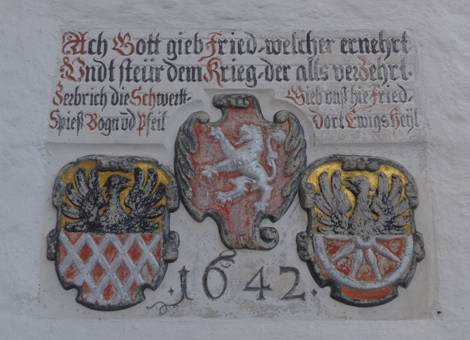 Ach Gott gieb Fried, welcher ernehrt
Vndt steür dem Krieg, der alls verzehrt.
Zerbrich die Schwertt, Gieb vnß hie Fried,
Spieß Bogn vd Pfeil Dort Ewigs Heÿl
.1642.